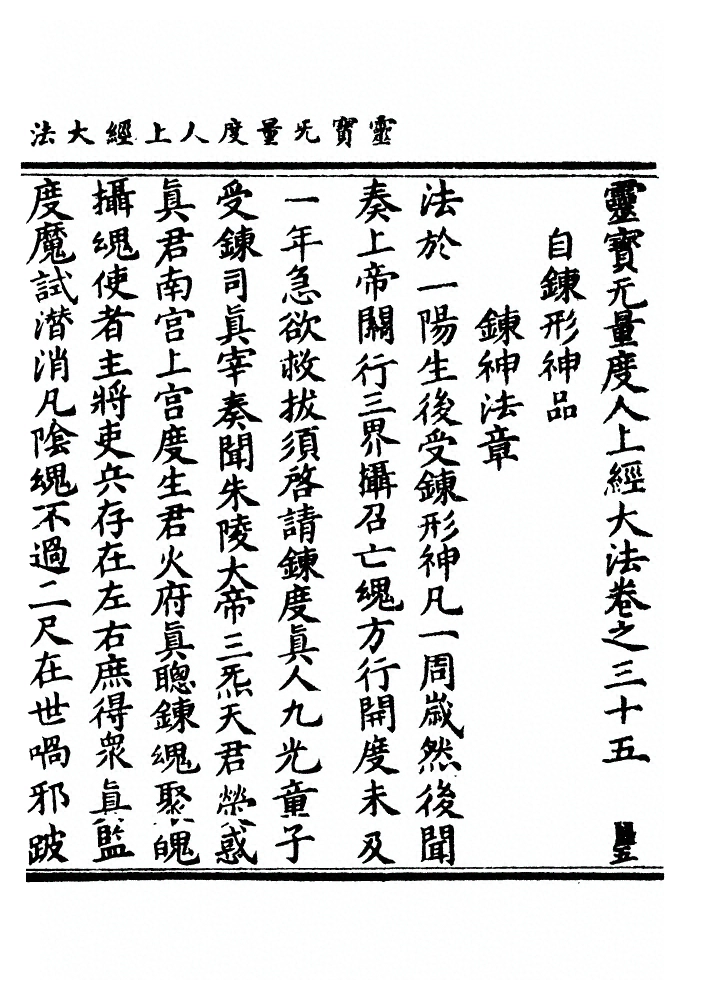 靈寳无量度人上經大法
靈寳无量度人上經大法卷之三十五
自鍊形神品
鍊神法章
法於一陽生後受鍊形神凡一周嵗然後聞
奏上帝關行三界攝召亡魂方行開度未及
一年急欲救拔須啓請鍊度眞人九光童子
受鍊司眞宰奏聞朱陵大帝三炁天君熒惑
眞君南宫上宫度生君火府眞聰鍊魂聚魄
攝魂使者主將吏兵存在左右庶得衆眞監
度魔試潛消凡陰魂不過二尺在世喎邪跛